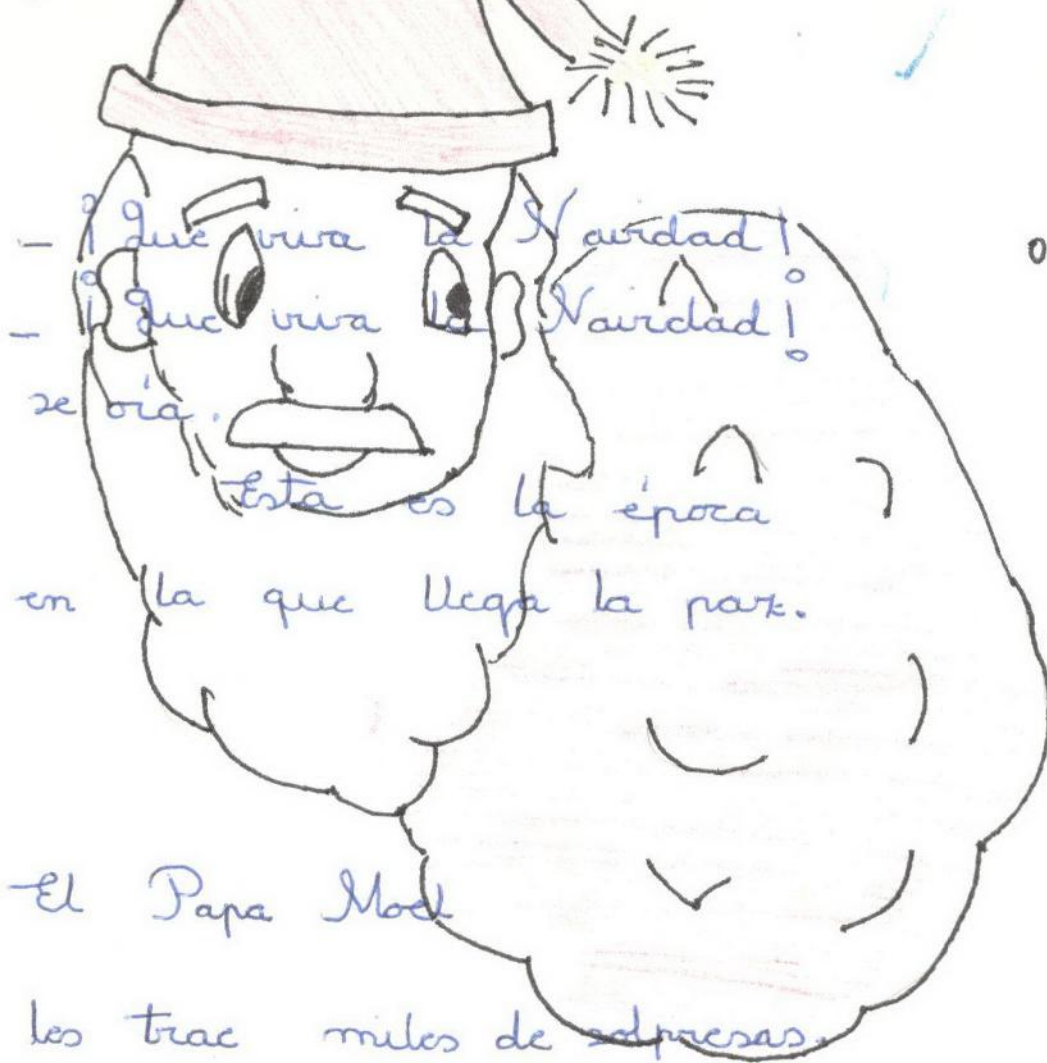 - ¡Que viva la Navidad!
- ¡Que viva la Navidad!
se oía.
Esta es la época
en la que llega la paz.
El Papa Noel
les trae miles de solpresas.